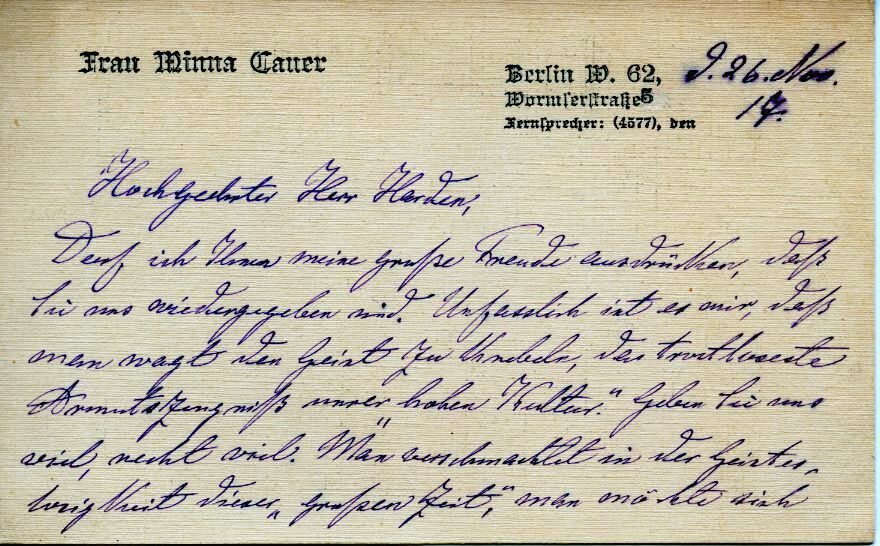 Frau Minna Cauer
Berlin W. 62, d. 26. Nov.
Wormserstraße 5 17.
Fernsprecher: (4577), den
Hochgeehrter Herr Harden,
Darf ich Ihnen meine große Freude ausdrücken, daß
Sie uns wiedergegeben sind. Unfasslich ist es mir, daß
man wagt den Geist zu knebeln, das trostloseste
Armutszeugniß unsrer hohen Kultur." Geben Sie uns
viel, recht viel. Man verschmachtet in der Geistes-
 dieser „großen Zeit", man möchte sich